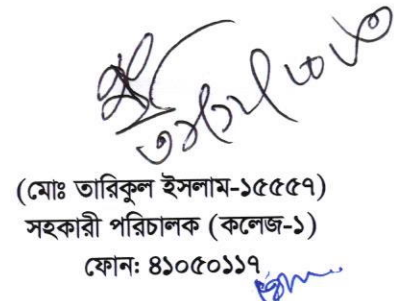 (মোঃ তারিকুল ইসলাম-১৫৫৫৭)
সহকারী পরিচালক (কলেজ-১)
ফোন: ৪১০৫০১১৭